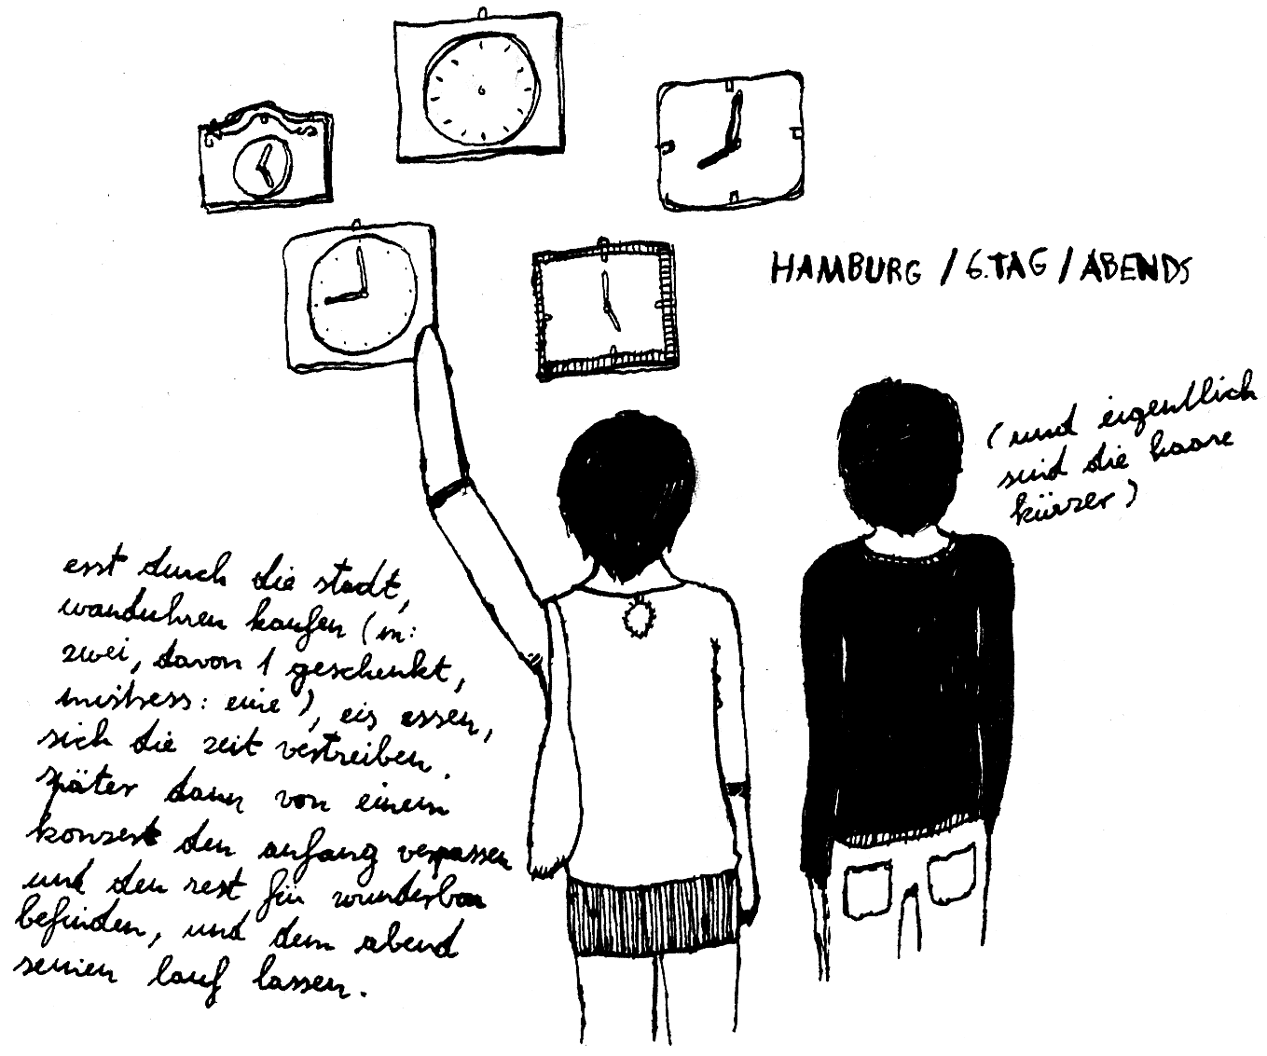 HAMBURG / 6.TAG / ABENDS
(und eigentlich
sind die haare
kürzer)
erst durch die stadt,
wanduhren kaufen (m:
zwei, davon 1 geschenkt,
mistress: eine), eis essen,
sich die zeit vertreiben.
später dann von einem
konzert den anfang verpassen
und den rest für wunderbar
befinden, und dem abend
seinen lauf lassen.